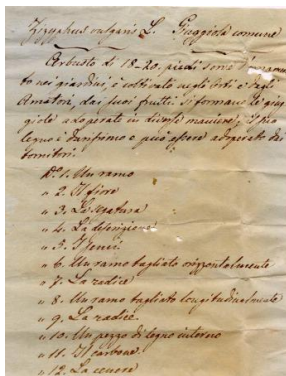 Zizyphus vulgaris L. Giuggiolo comune
Arbusto di 18-20. piedi
nei giardini, è coltivato negli orti e dagli
Amatori, dai suoi frutti si formano le giug
giole adoperate in diverse maniere; Il suo
legno è durissimo e può essere adoperato dai
tornitori.
No. 1. Un ramo
" 2. Il fiore
" 3. La
" 4. La
" 5. I semi
" 6. Un ramo tagliato orizzontalmente
" 7. La radice
" 8. Un ramo tagliato longitudinalmente
" 9. La radice
" 10. Un pezzo di legno interno
" 11. Il carbone
" 12. La cenere